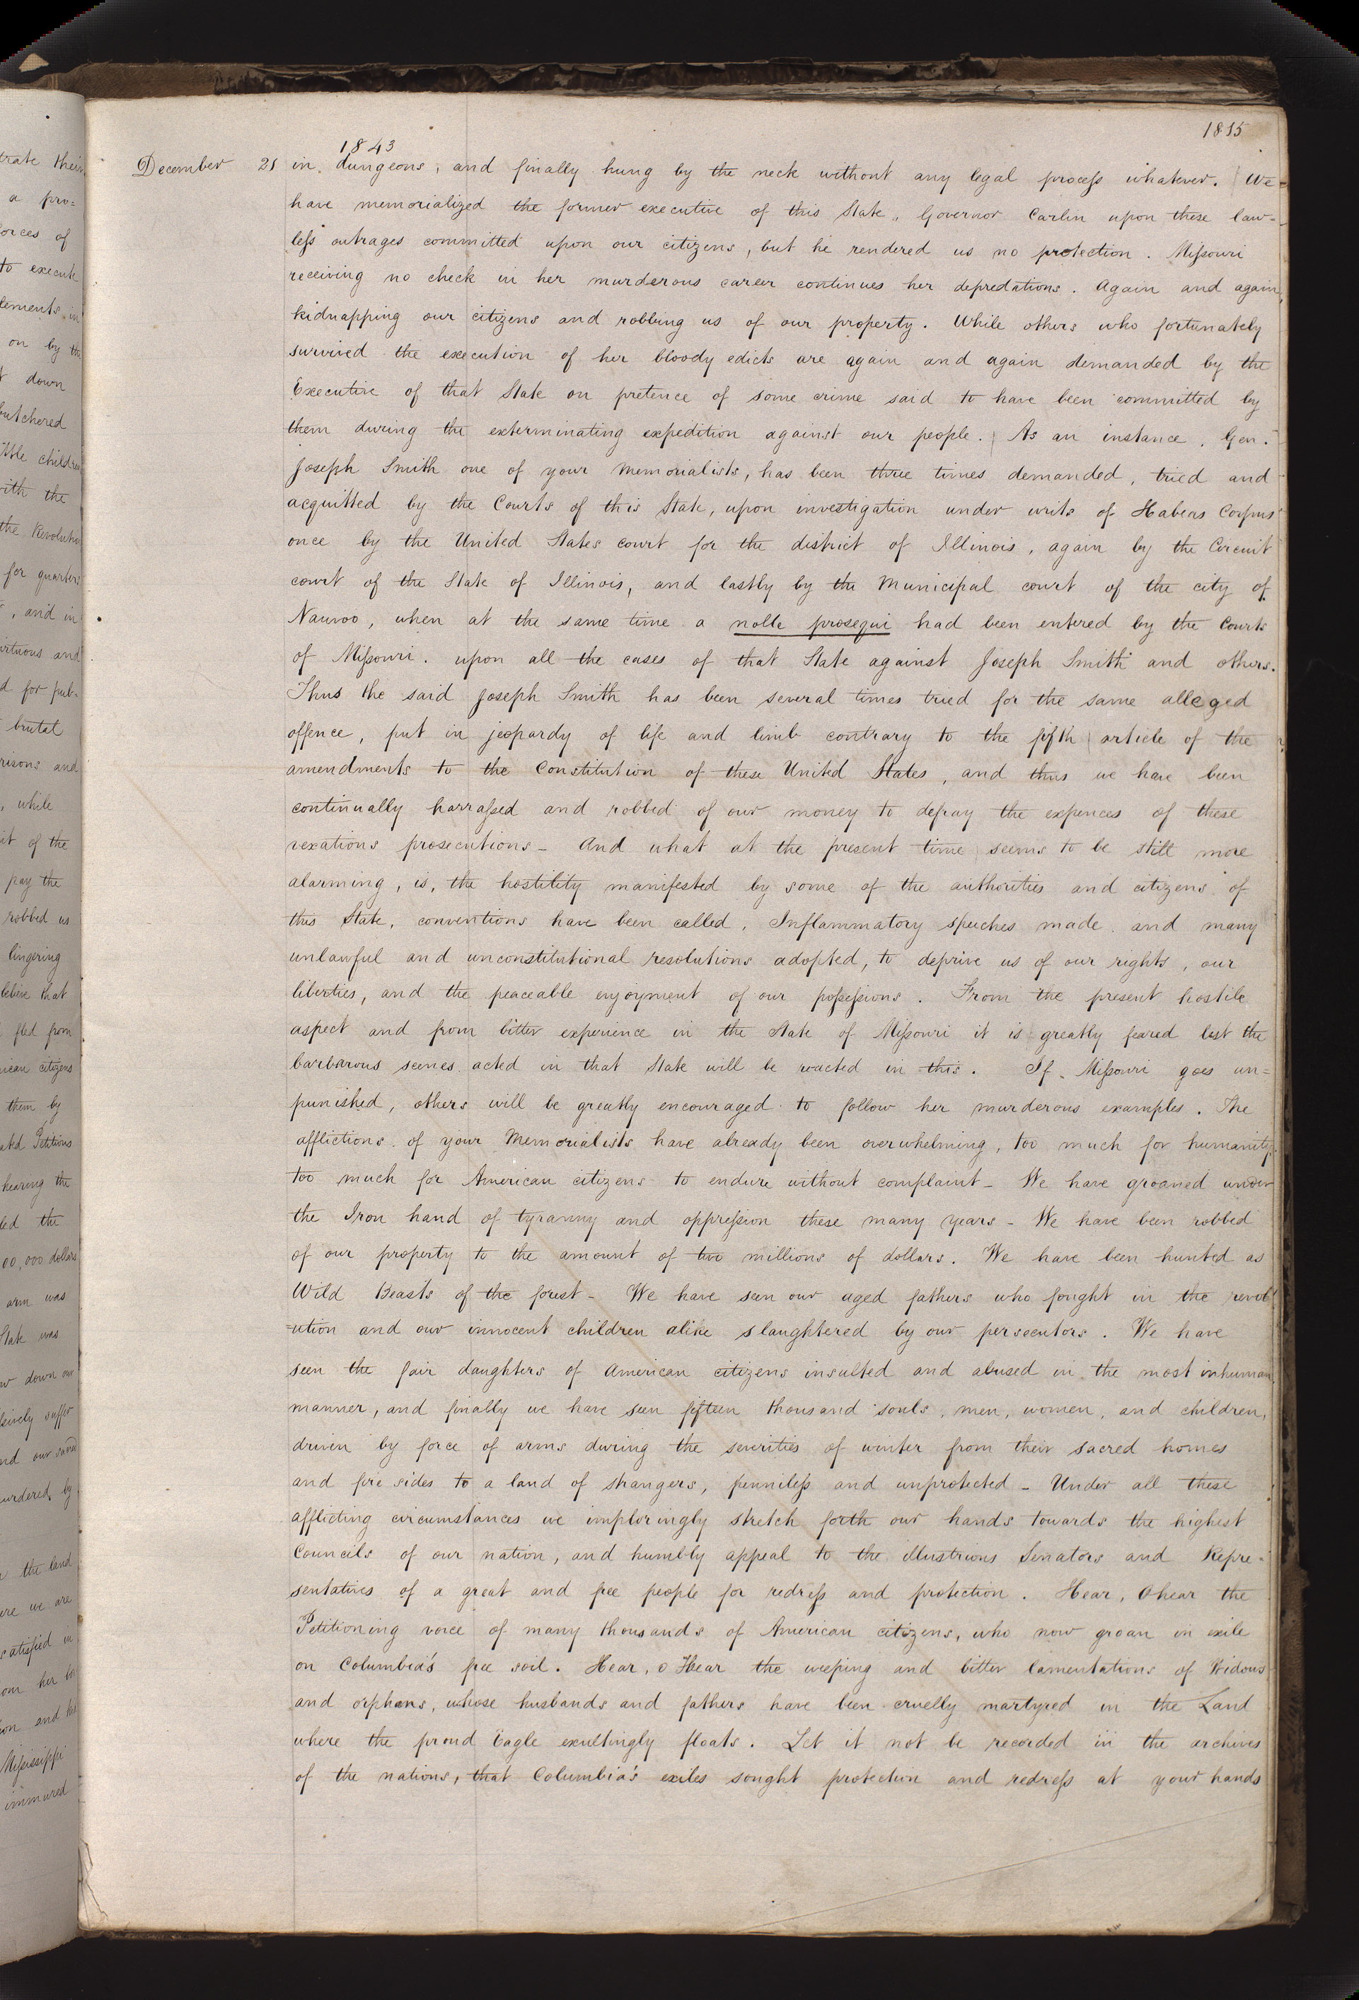 1815
1843
December 21 in dungeons, and finally hung by the neck without any legal process whatever. We
have memorialized the former executive of this State, Governor Carlin upon these law-
less outrages committed upon our citizens, but he rendered us no protection. Missouri
receiving no check in her murderous career continues her depredations. Again and again,
kidnapping our citizens and robbing us of our property. While others who fortunately
survived the execution of her bloody edicts are again and again demanded by the
Executive of that State on pretence of some crime said to have been committed by
them during the exterminating expedition against our people. As an instance, Gen.
Joseph Smith one of your memorialists, has been three times demanded, tried and
acquitted by the Courts of this State, upon investigation under writs of Habeas Corpus
once by the United States court for the district of Illinois, again by the Circuit
court of the State of Illinois, and lastly by the Municipal court of the city of
Nauvoo, when at the same time a nolle prosequi had been entered by the Courts
of Missouri. upon all the cases of that State against Joseph Smith and others.
Thus the said Joseph Smith has been several times tried for the same alleged
offence, put in jeopardy of life and limb contrary to the fifth article of the
amendments to the Constitution of these United States, and thus we have been
continually harrassed and robbed of our money to defray the expences of these
vexatious prosecutions - And what at the present time seems to be still more
alarming, is, the hostility manifested by some of the authorities and citizens of
this State, conventions have been called, Inflammatory speeches made. and many
unlawful and unconstitutional resolutions adopted, to deprive us of our rights, our
liberties, and the peaceable enjoyment of our possessions. From the present hostile
aspect and from bitter experience in the State of Missouri it is greatly feared lest the
barbarous scenes acted in that State will be reacted in this. If Missouri goes un=
punished, others will be greatly encouraged to follow her murderous examples. The
afflictions of your Memorialists have already been overwhelming, too much for humanity,
too much for American citizens to endure without complaint - We have groaned under
the Iron hand of tyranny and oppression these many years - We have been robbed
of our property to the amount of two millions of dollars. We have been hunted as
Wild Beasts of the forest - We have seen our aged fathers who fought in the revol
=ution and our innocent children alike slaughtered by our persecutors. We have
seen the fair daughters of American citizens insulted and abused in the most inhuman
manner, and finally we have seen fifteen thousand souls, men, women, and children,
driven by force of arms during the severities of winter from their sacred homes
and fire sides to a land of strangers, penniless and unprotected - Under all these
afflicting circumstances we imploringly stretch forth our hands towards the highest
Councils of our nation, and humbly appeal to the illustrious Senators and Repre-
sentatives of a great and free people for redress and protection. Hear, O hear the
Petitioning voice of many thousands of American citizens, who now groan in exile
on Columbia's free soil. Hear, O Hear the weeping and bitter lamentations of Widows
and orphans, whose husbands and fathers have been cruelly martyred in the Land
where the proud Eagle exultingly floats. Let it not be recorded in the archives
of the nations, that Columbia's exiles sought protection and redress at your hands